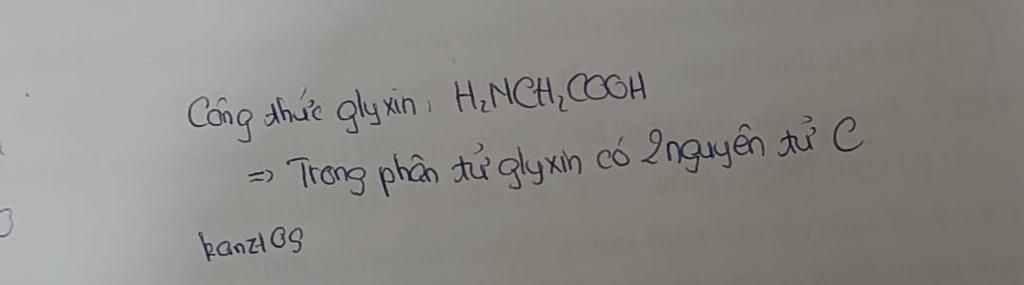 Công thức glyxin: H₂NCH₂COOH
=> Trong phân tử glyxin có 2 nguyên tử C